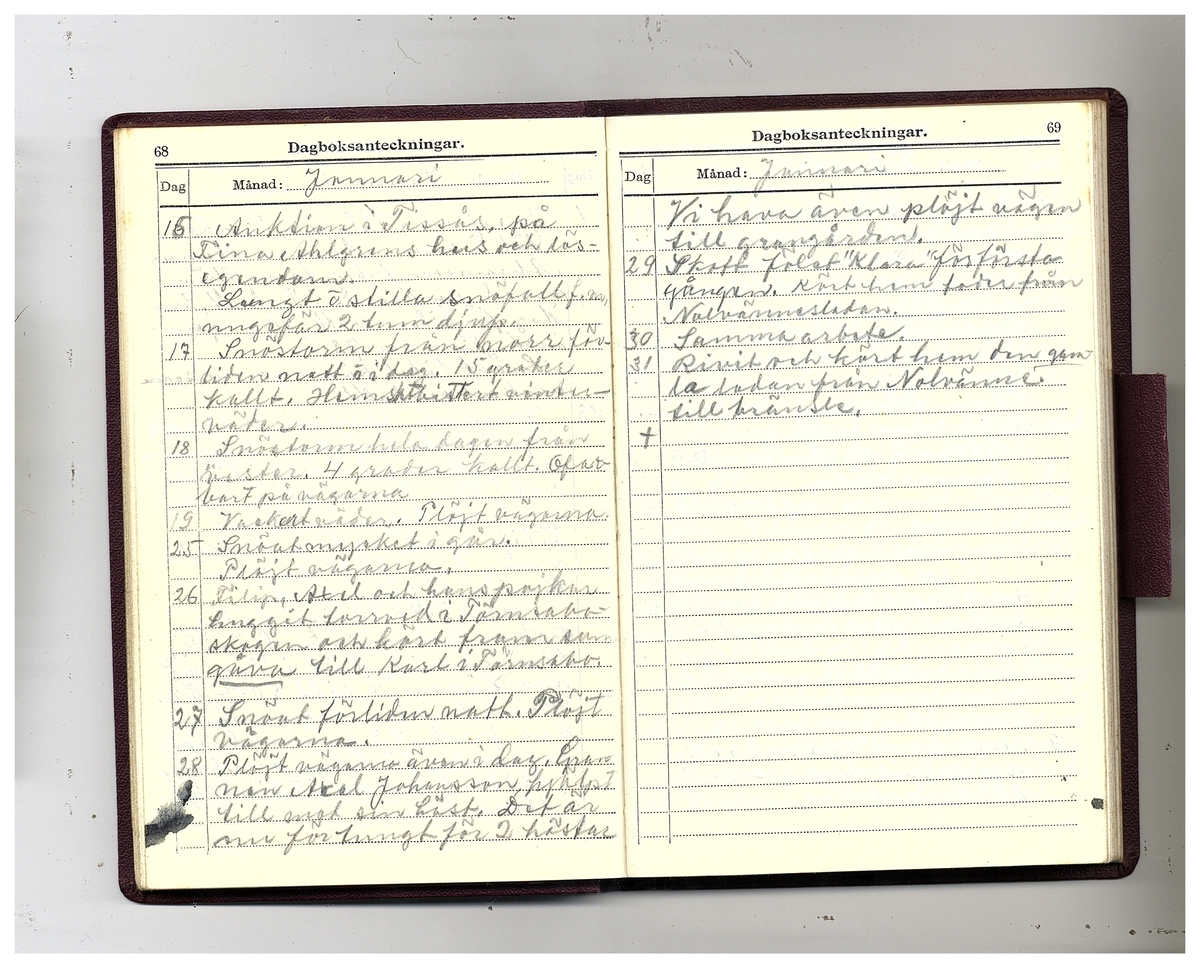 68
Dagboksanteckningar.
Dag Månad: Januari
16 Auktion i Tissås, på
Tina Ahlgrens hus och lös-
egendom.
Lungt o stilla snöfall f.m.
ungefär 2 tum djup.
17 Snöstorm från norr för-
liden natt o i dag. 15 grader
kallt. bittert vinter-
väder.
18 Snöstorm hela dagen från
väster. 4 grader kallt. Ofar-
bart på vägarna
19 Vackert väder. Plöjt vägarna.
25 Snöat mycket i går.
Plöjt vägarna.
26 Filip, Axel och hans pojkar
huggit torrved i Törnsabo-
skogen och kört fram som
gåva till Karl i Törnsabo.
27 Snöat förliden natt. Plöjt
vägarna.
28 Plöjt vägarna även i dag. Gran
nen Axel Johansson, hjälpt
till med sin häst. Det är
nu för tungt för 2 hästar
69
Dagboksanteckningar.
Dag Månad: Januari
Vi hava även plöjt vägen
till grangården.
29 Skott fölet "Klara" för första
gången. Kört hem foder från
Nolvänneladan.
30 Samma arbete.
31 Rivit och kört hem den gam
la ladan från Nolvänne
till bränsle.
+